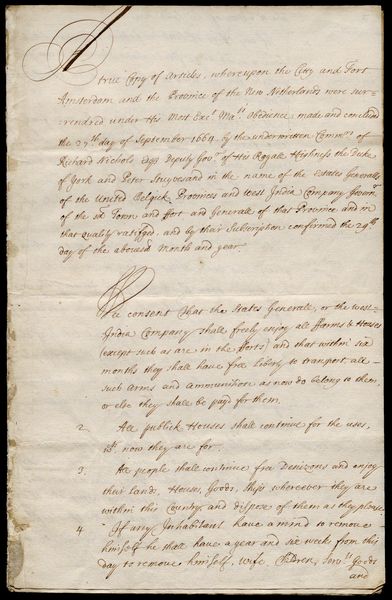 A
true Copy of Articles, whereupon the Citty and Fort
Amsterdam and the Province of the New Netherlands were sur-
rendred under His Most Excel.t Ma.ties Obedience, made and concluded
the 27th day of September 1664. by the underwritten Comm.rs of
Richard Nichols Esq.r Deputy Gov.r of His Royale Highness the Duke
of York and Peter Stuyvesand in the name of the Estates Generalls
of the United Belgick Provinces and West India Company Govern.r
of the s.d Town and ffort and Generale of that Province and in
that quality ratifyed, and by their Subscription confirmed the 29.th
day of the abovesd month and year.
We consent That the States Generall, or the West-
India Company shall freely enjoy all ffarms & Houses
(except such as are in the fforts) and that within six
months they shall have free liberty to transport all
such Arms and ammunition as now do belong to them,
or else they shall be paid for them.
2. All publick Houses shall continue for the uses,
w.ch now they are for.
3. All people shall continue free Denizons and enjoy
their lands, Houses, Goods, Ships wheresoever they are
within this Country, and dispose of them as they please
4 If any Inhabitant have a mind to remove
himself he shall have a year and six weeks from this
day to remove himself, wife, Children, Serv.ts Goods
and